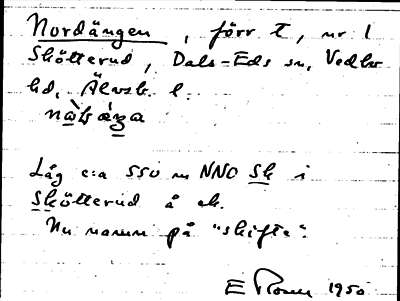 Nordängen, förr t, nr 1
Skötterud, Dals-Eds sn, Vedbo
hd, Älvsb. l.
Låg c:a 550 m NNO Sk i
Skötterud å ek.
Nu namn på "skifte".
E 1950